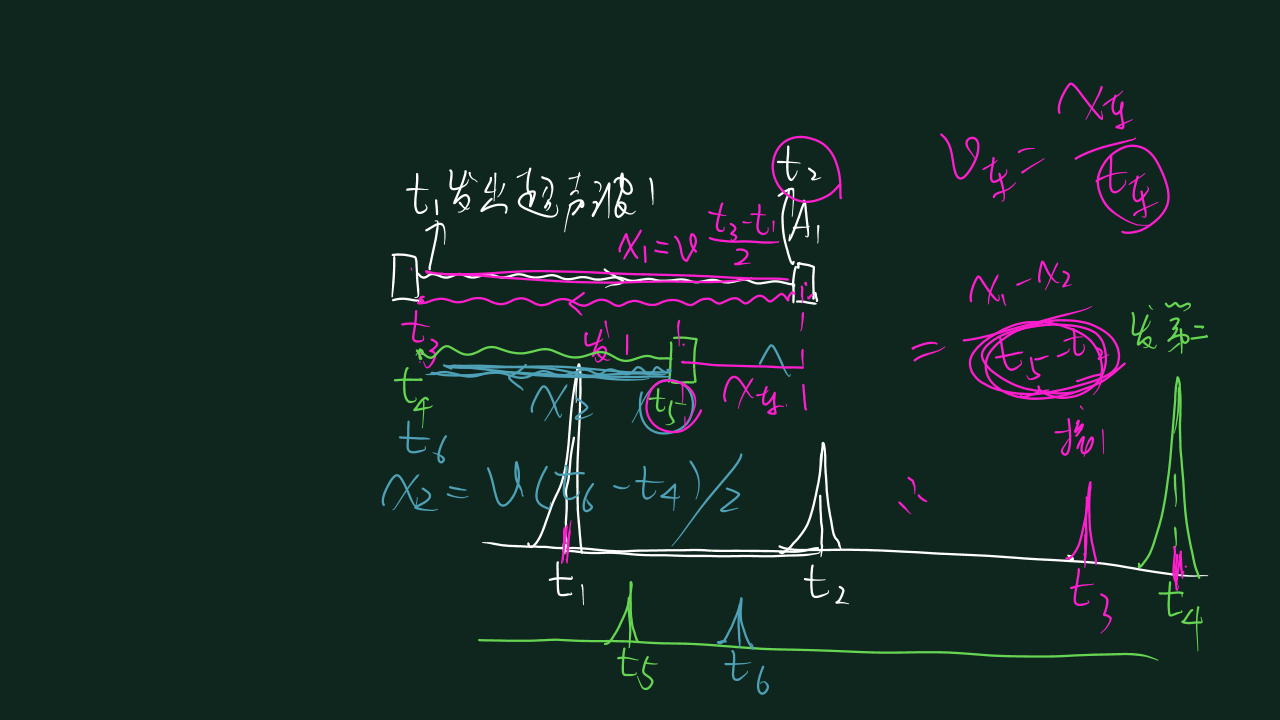 t₂
t₁发出超声波1
A₁
x₁=v (t₃-t₁)/2
t₃
发1
t₄
x₂
t₅
x车
t₆
x₂=v(t₆-t₄)/2
v车=x车/t车
=(x₁-x₂)/(t₅-t₂)
发第二
接1
∴
t₁
t₂
t₃
t₄
t₅
t₆